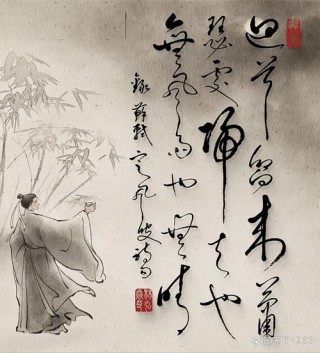 回首向来萧
瑟处归去也
无风雨也无晴
录苏轼定风波诗句